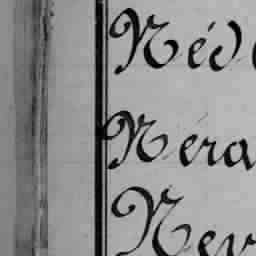 Néd
Néra
Nev